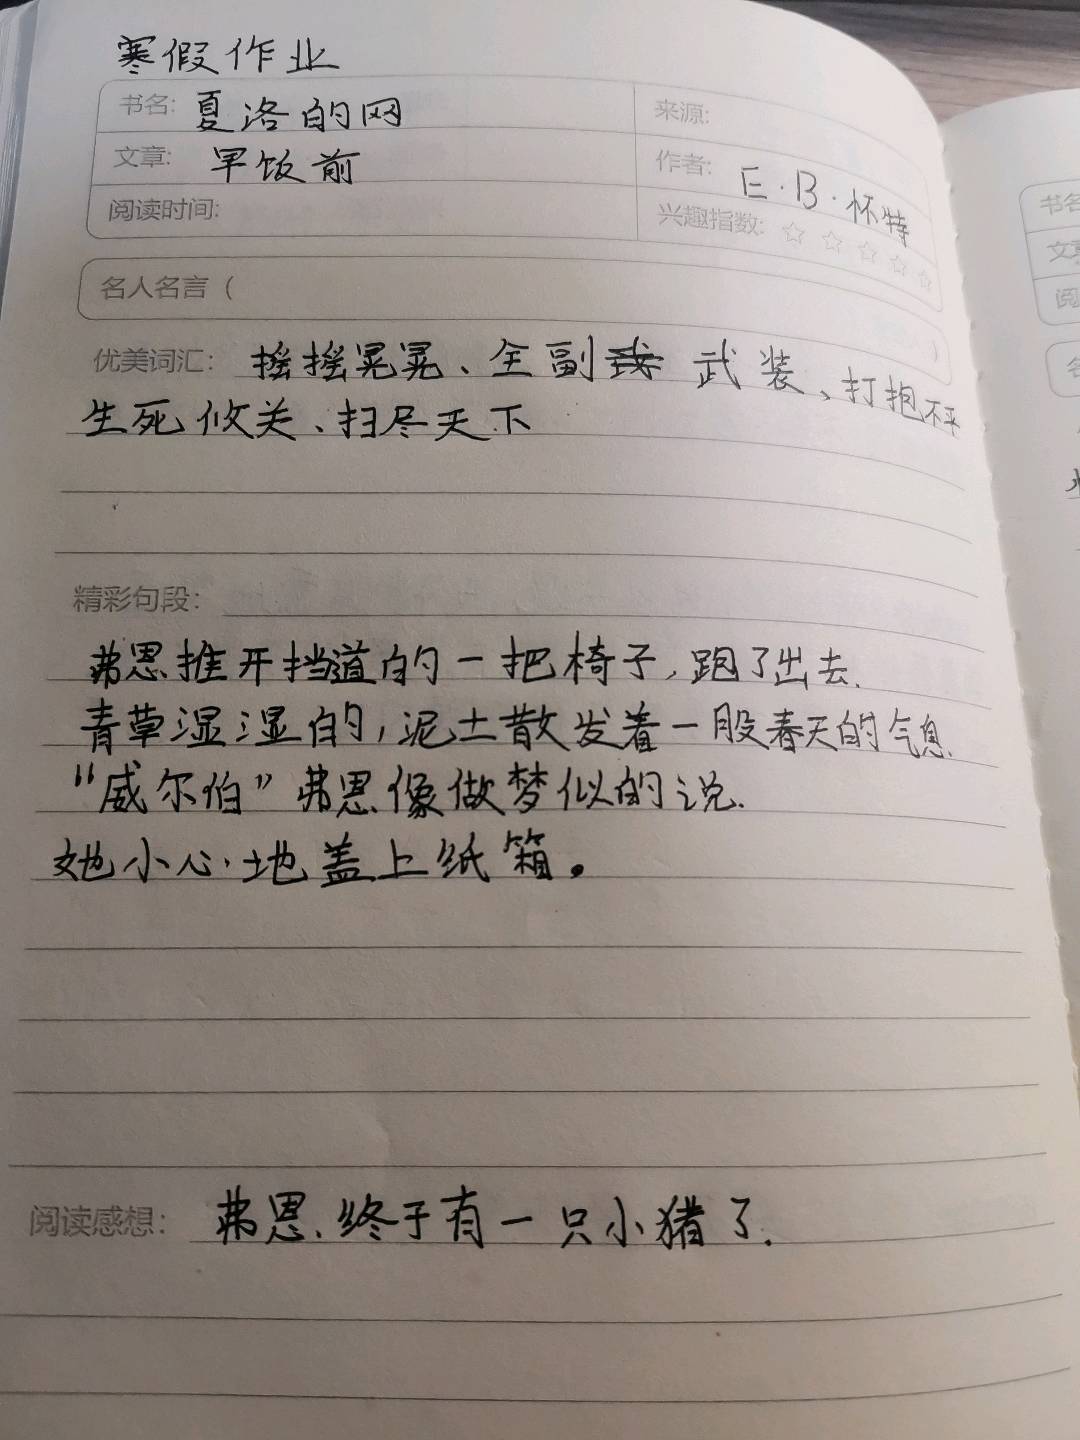 寒假作业
书名: 夏洛的网
来源:
文章: 早饭前
作者: E·B·怀特
阅读时间:
兴趣指数: ☆☆☆☆☆
名人名言（ ）
优美词汇: 摇摇晃晃、全副武装、打抱不平
生死攸关、扫尽天下
精彩句段:
弗恩推开挡道的一把椅子,跑了出去.
青草湿湿的,泥土散发着一股春天的气息.
“威尔伯”弗恩像做梦似的说.
她小心地盖上纸箱。
阅读感想: 弗恩、终于有一只小猪了.
书名
文章
阅
名